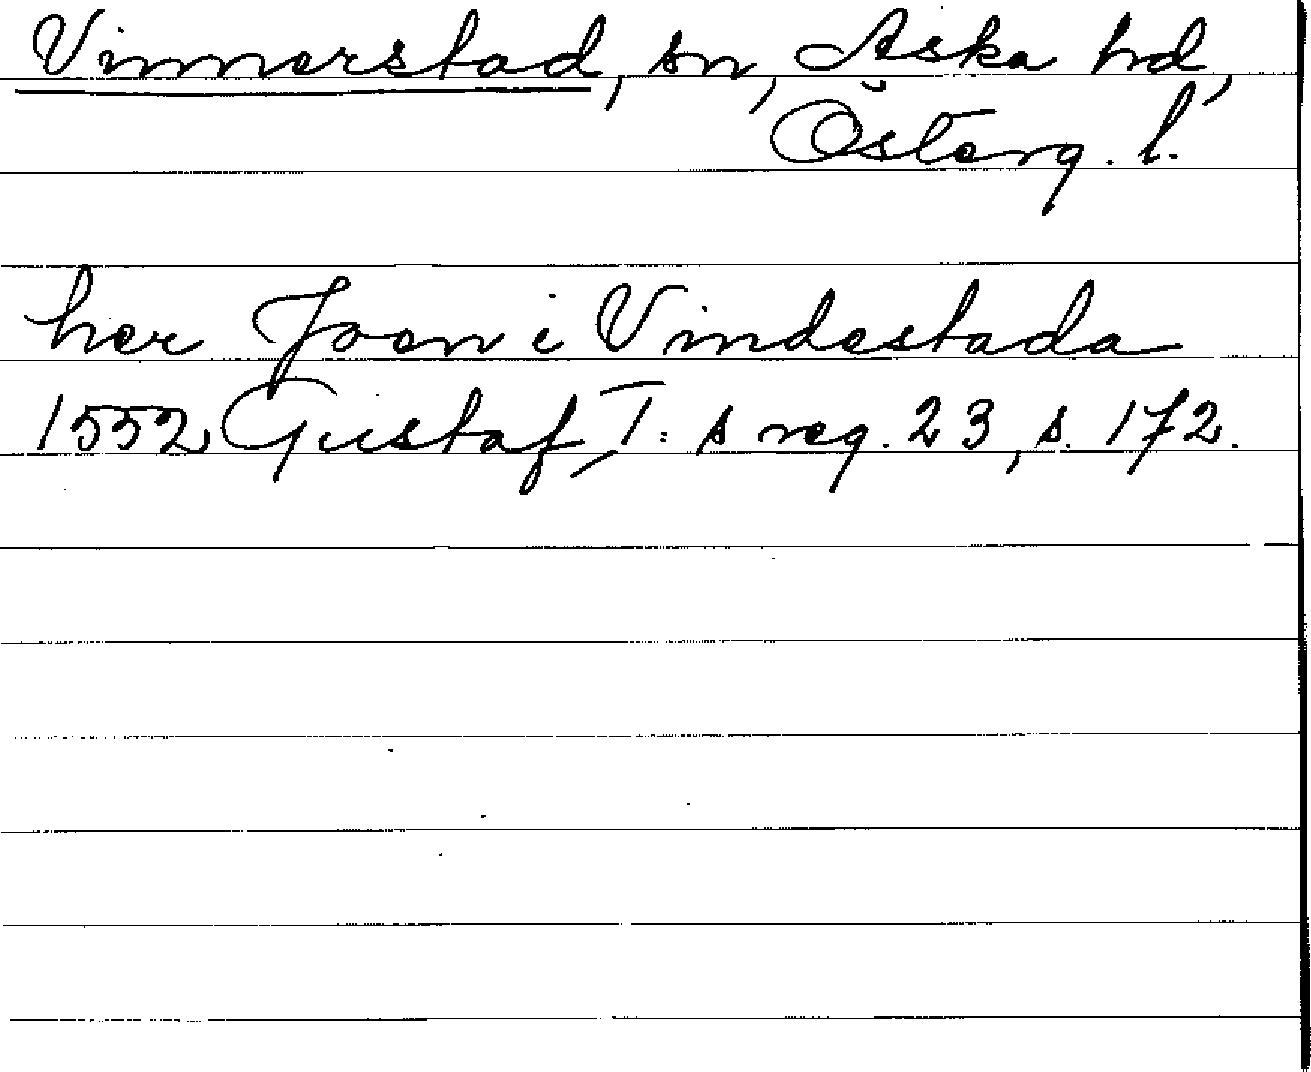 Vinnerstad, sn, Aska hd,
Österg. l.
her Joen i Vindestada
1552 Gustaf I: s reg. 23, s. 172.